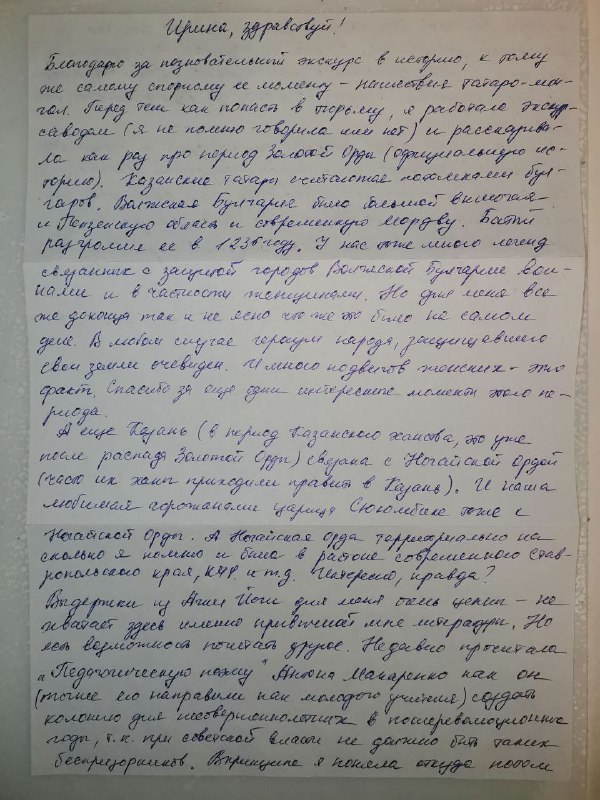 Ирина, здравствуй!
Благодарю за познавательный экскурс в историю, к тому
же самому спорному ее моменту – нашествия татаро-мон-
гол. Перед тем как попасть в тюрьму, я работала экскур-
саводом (я не помню говорила или нет) и рассказыва-
ла как раз про период Золотой Орды (официальную ис-
торию). Казанские татары считаются потомками бул-
гаров. Волжская Булгария была большой включая
и Пензенскую область и современную Мордву. Батый
разгромил ее в 1236 году. У нас тоже много легенд
связанных с защитой городов Волжской Булгарии вои-
нами и в частности женщинами. Но для меня все
же до конца так и не ясно что же это было на самом
деле. В любом случае героизм народа, защищавшего
свои земли очевиден. И много подвигов женских – это
факт. Спасибо за еще одни интересные моменты этого пе-
риода.
А еще Казань (в период Казанского ханства, это уже
после распада Золотой Орды) связана с Ногайской Ордой
(часто их ханы приходили править в Казань). И наша
любимая горожанами царица Сююмбике тоже с
Ногайской Орды. А Ногайская Орда территориально на
сколько я помню и была в районе современного Став-
ропольского края, КЧР и т.д. Интересно, правда?
Выдержки из Агни Йоги для меня очень ценны – не
хватает здесь именно привычной мне литературы. Но
есть возможность почитать другое. Недавно прочитала
"Педагогическую поэму" Антона Макаренко как он
(точнее его направили как молодого учителя) создать
колонию для несовершеннолетних в послереволюционные
годы, т.к. при советской власти не должно быть таких
беспризорников. Впринципе я поняла откуда потом